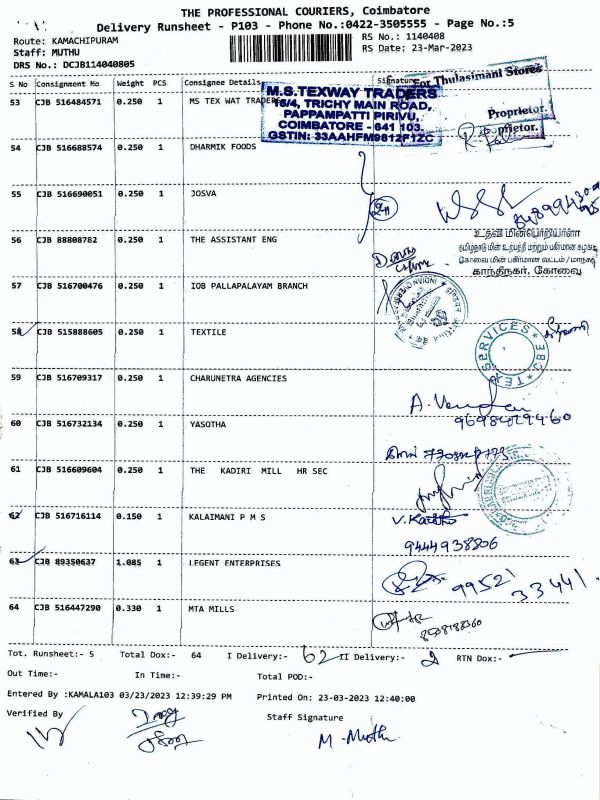 THE PROFESSIONAL COURIERS, Coimbatore
Delivery Runsheet - P103 - Phone No.:0422-3505555 - Page No.:5
Route: KAMACHIPURAM
RS No.: 1140408
Staff: MUTHU
RS Date: 23-Mar-2023
DRS No.: DCJB114040805
S No Consignment No Weight PCS Consignee Details Signature
For Thulasimani Stores
Proprietor.
Proprietor.
M.S.TEXWAY TRADERS
16/4, TRICHY MAIN ROAD,
PAPPAMPATTI PIRIVU,
COIMBATORE - 641 103.
GSTIN: 33AAHFM9812F1ZC
53 CJB 516484571 0.250 1 MS TEX WAT TRADERS
54 CJB 516688574 0.250 1 DHARMIK FOODS
55 CJB 516690051 0.250 1 JOSVA
56 CJB 88808782 0.250 1 THE ASSISTANT ENG
உதவி மின்பொறியாளர்
காந்திநகர், கோவை
57 CJB 516700476 0.250 1 IOB PALLAPALAYAM BRANCH
58 CJB 515888605 0.250 1 TEXTILE
SERVICES
59 CJB 516709317 0.250 1 CHARUNETRA AGENCIES
60 CJB 516732134 0.250 1 YASOTHA
61 CJB 516609604 0.250 1 THE KADIRI MILL HR SEC
62 CJB 516716114 0.150 1 KALAIMANI P M S
9444938806
63 CJB 89350637 1.085 1 LEGENT ENTERPRISES
99521 33441
64 CJB 516447290 0.330 1 MTA MILLS
Tot. Runsheet:- 5 Total Dox:- 64 I Delivery:- 62 II Delivery:- 2 RTN Dox:-
Out Time:- In Time:- Total POD:-
Entered By :KAMALA103 03/23/2023 12:39:29 PM Printed On: 23-03-2023 12:40:00
Verified By Staff Signature
M. Muthu